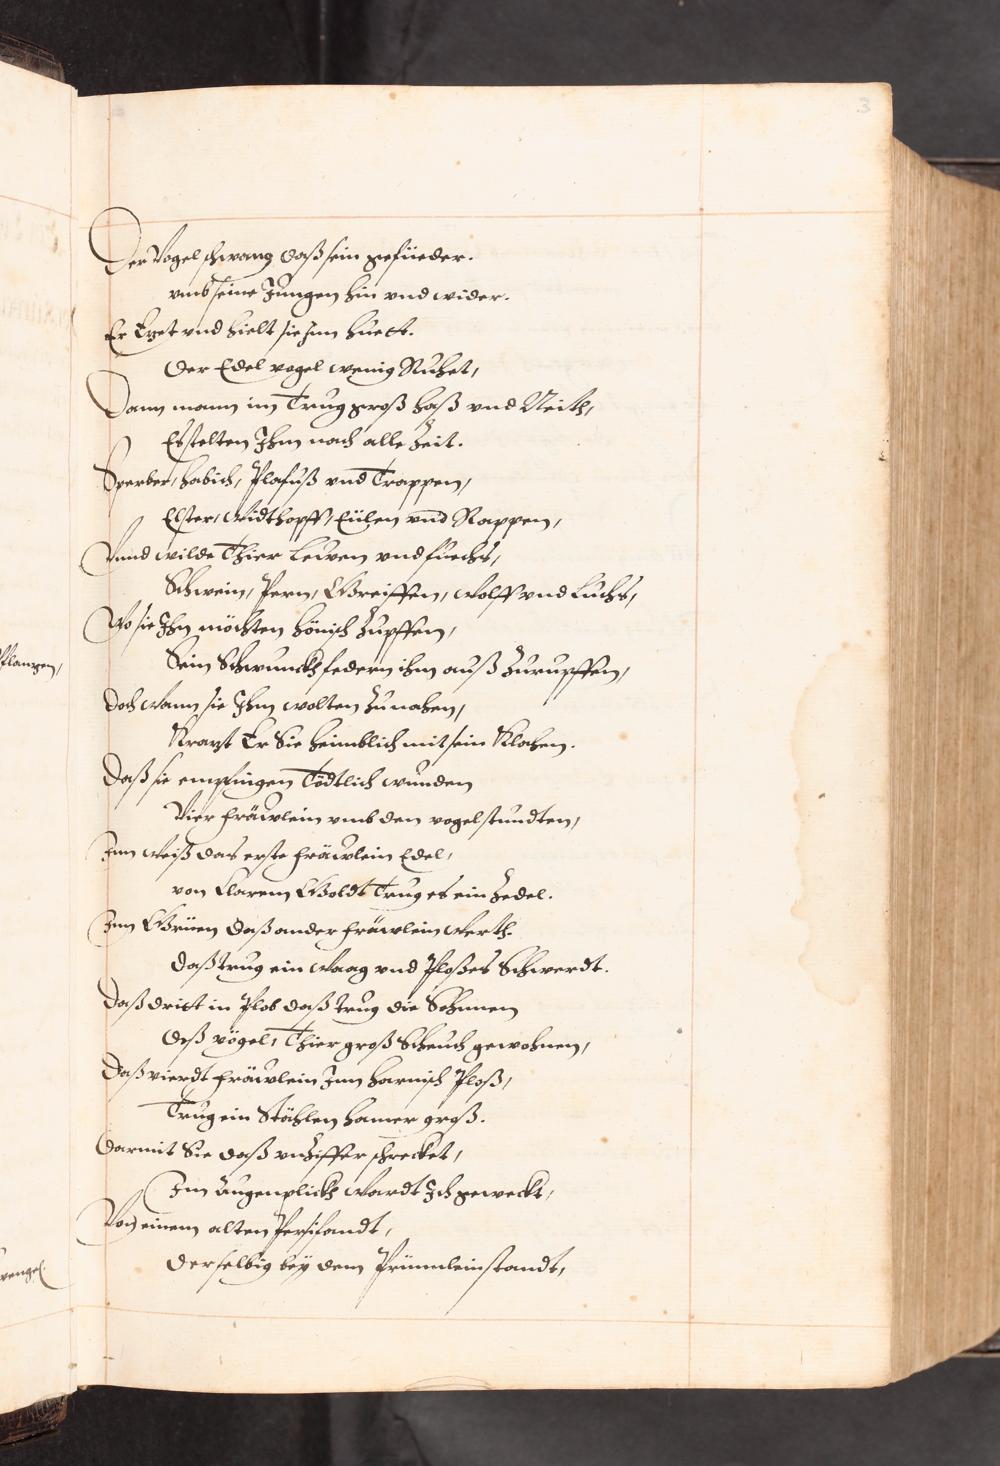 3
Der Vogel schwang daß sein gefüeder.
vmb seine Jungen hin vnd wider.
Er Etzet vnd hielt sie Inn huett.
der Edel vogel wenig Ruhet,
Dann mann im Trug groß haß vnd Neith,
Es stelten Ihm nach alle Zeit.
Sperber, habich, Plafuß vnd Trappen,
Elster, Widthopff, Eülen vnd Rappen,
Vnnd wilde Thier Lewen vnd füechs,
Schwein, Pern, Greiffen, Wolff vnd Luchs,
Wo sie Ihn möchten hönisch Zupffen,
Sein Schwunckhfedern ihm auß Zurupffen,
doch wann sie Ihm wolten Zunahen,
Kratzt Er Sie heimblich mit sein Klahen.
daß sie empfingen Tödtlich wunden
Vier fräwlein vmb den vogel stundten,
Inn Weiß das erste fräwlein Edel,
von Clarem Goldt Trug es ein Zedel.
Inn Grüen daß ander fräwlein Werth.
daß trug ein Waag vnd Ploßes Schwerdt.
daß dritt in Plob daß trug die Sohnnen
deß vögel, Thier groß Scheuch gewohnen,
daß vierdt fräwlein Inn harnisch Ploß,
Trug ein Stählen hamer groß.
darmit Sie daß vnZiffer schrecket,
Im Augenplickh Wardt Ich geweckt,
Von einem alten Persifandt,
derselbig bey dem Prünnlein standt,
Pflantzen,